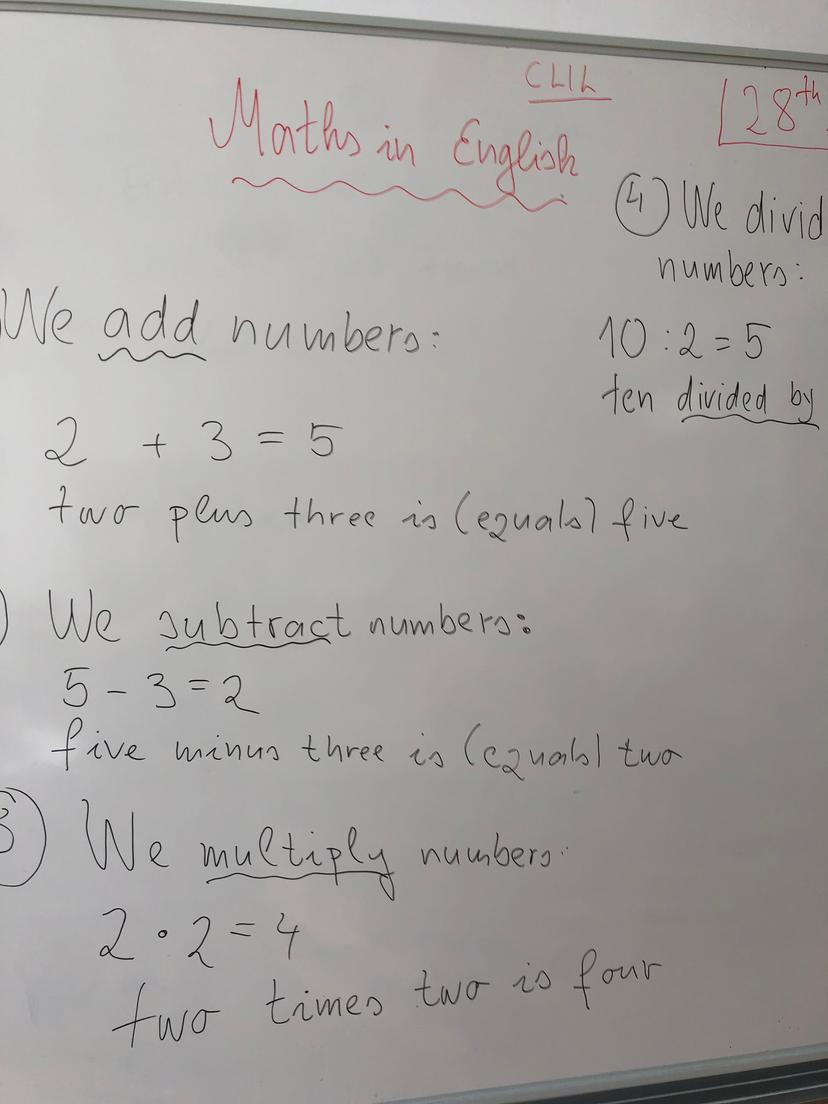 CLIL
Maths in English
28th
We add numbers:
2 + 3 = 5
two plus three is (equals) five
We subtract numbers:
5 - 3 = 2
five minus three is (equals) two
3 We multiply numbers:
2 · 2 = 4
two times two is four
4 We divid
numbers:
10 : 2 = 5
ten divided by